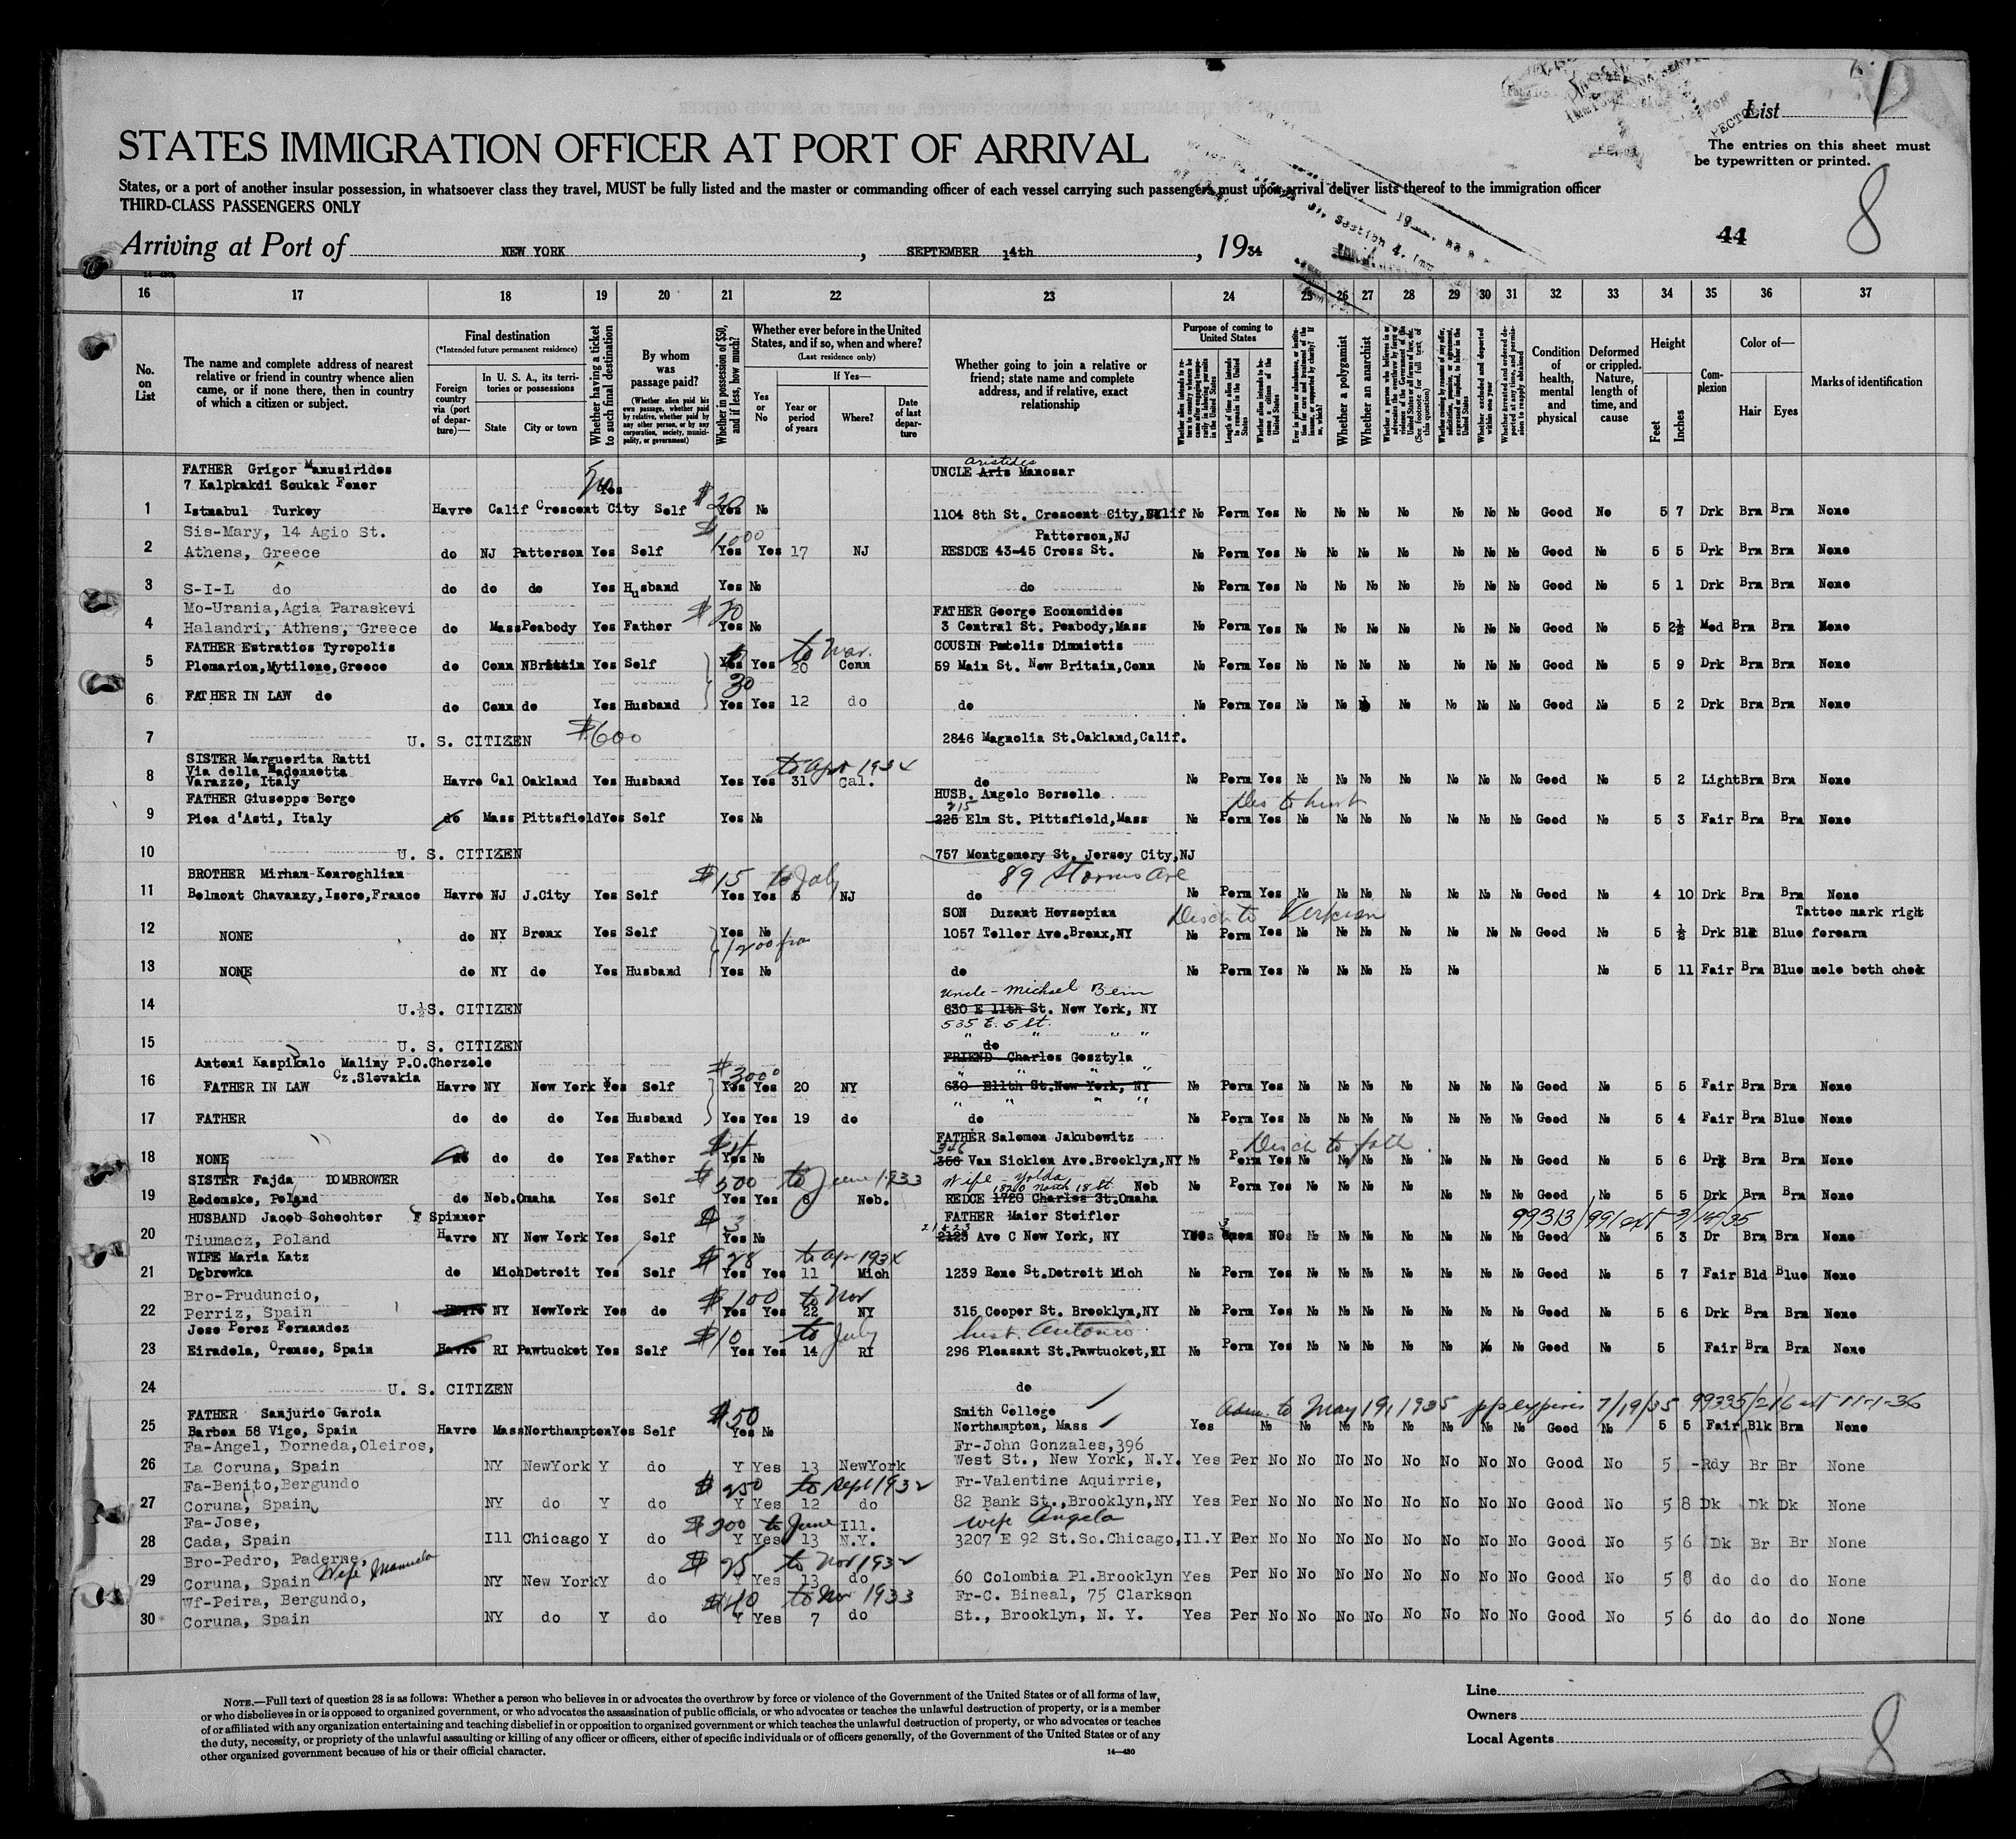 List
STATES IMMIGRATION OFFICER AT PORT OF ARRIVAL
The entries on this sheet must
be typewritten or printed.
States, or a port of another insular possession, in whatsoever class they travel, MUST be fully listed and the master or commanding officer of each vessel carrying such passengers must upon arrival deliver lists thereof to the immigration officer
THIRD-CLASS PASSENGERS ONLY
8
44
Arriving at Port of NEW YORK, SEPTEMBER 14th, 1934
16 17 18 19 20 21 22 23 24 25 26 27 28 29 30 31 32 33 34 35 36 37
No. on List
The name and complete address of nearest relative or friend in country whence alien came, or if none there, then in country of which a citizen or subject.
Final destination
(*Intended future permanent residence)
Foreign country via (port of departure)—
In U. S. A., its territories or possessions
State
City or town
Whether having a ticket to such final destination
By whom was passage paid?
(Whether alien paid his own passage, whether paid by relative, whether paid by any other person, or by any corporation, society, municipality, or government)
Whether in possession of $50, and if less, how much?
Whether ever before in the United States, and if so, when and where?
(Last residence only)
Yes or No
If Yes—
Year or period of years
Where?
Date of last departure
Whether going to join a relative or friend; state name and complete address, and if relative, exact relationship
Purpose of coming to United States
Length of time alien intends to remain in the United States
Whether alien intends to become a citizen of the United States
Whether a polygamist
Whether an anarchist
Condition of health, mental and physical
Deformed or crippled. Nature, length of time, and cause
Height
Feet
Inches
Complexion
Color of—
Hair
Eyes
Marks of identification
FATHER Grigor Manusirides UNCLE Aris Aristides Manosar
7 Kalpkakdi Soukak Fener
1 Istnabul Turkey Havre Calif Crescent City Yes Self $20 Yes No 1104 8th St. Crescent City, Calif No Perm Yes No No No No No No No Good No 5 7 Drk Brn Brn None
Sis-Mary, 14 Agio St. $1000 Patterson, NJ
2 Athens, Greece do NJ Patterson Yes Self Yes Yes 17 NJ RESDCE 43-45 Cross St. No Perm Yes No No No No No No No Good No 5 5 Drk Brn Brn None
3 S-I-L do do do do Yes Husband Yes No do No Perm Yes No No No No No No No Good No 5 1 Drk Brn Brn None
Mo-Urania, Agia Paraskevi $20 FATHER George Economides
4 Halandri, Athens, Greece do Mass Peabody Yes Father Yes No 3 Central St. Peabody, Mass No Perm Yes No No No No No No No Good No 5 2½ Med Brn Brn None
FATHER Estratios Tyropolis to Mar. COUSIN Pantelis Dimniotis
5 Plomarion, Mytilene, Greece do Conn NBritain Yes Self Yes Yes 20 Conn 59 Main St. New Britain, Conn No Perm Yes No No No No No No No Good No 5 9 Drk Brn Brn None
30
6 FATHER IN LAW do do Conn do Yes Husband Yes Yes 12 do do No Perm Yes No No No No No No Good No 5 2 Drk Brn Brn None
7 U. S. CITIZEN $600 2846 Magnolia St. Oakland, Calif.
SISTER Marguerita Ratti
Via della Madonnetta to Apr 1934
8 Varazze, Italy Havre Cal Oakland Yes Husband Yes Yes 31 Cal. do No Perm Yes No No No No No No No Good No 5 2 Light Brn Brn None
FATHER Giuseppe Berge HUSB. Angelo Borselle
215
9 Piea d'Asti, Italy do Mass Pittsfield Yes Self Yes No 225 Elm St. Pittsfield, Mass No Perm Yes No No No No No No No Good No 5 3 Fair Brn Brn None
10 U. S. CITIZEN 757 Montgomery St. Jersey City, NJ
BROTHER Mirham Kenreghlian $15 to July 89 Storms Ave
11 Belmont Chavanzy, Isere, France Havre NJ J.City Yes Self Yes Yes 6 NJ do No Perm Yes No No No No No No No Good No 4 10 Drk Brn Brn None
SON Duzant Hovsepian Tattoo mark right
12 NONE do NY Bronx Yes Self Yes No 1057 Teller Ave. Bronx, NY No Perm Yes No No No No No No No Good No 5 ½ Drk Blk Blue forearm
1200 fra
13 NONE do NY do Yes Husband Yes No do No Perm Yes No No No No No No 5 11 Fair Brn Blue mole both chek
Uncle - Michael Bein
14 U. S. CITIZEN 630 E 11th St. New York, NY
535 E. 5 St.
15 U. S. CITIZEN " " " "
do
Antoni Kaspikalo Maliny P.O. Chorzele FRIEND Charles Gosztyla
Cz.Slovakia $3000
16 FATHER IN LAW Havre NY New York Yes Self Yes Yes 20 NY 630 E11th St. New York, NY No Perm Yes No No No No No No No Good No 5 5 Fair Brn Brn None
17 FATHER do do do Yes Husband Yes Yes 19 do do No Perm Yes No No No No No No No Good No 5 4 Fair Brn Blue None
FATHER Salomon Jakubowitz
346 Disch to fath.
18 NONE do do do Yes Father Yes No 358 Van Sicklen Ave. Brooklyn, NY No Perm Yes No No No No No No No Good No 5 6 Drk Brn Brn None
SISTER Fajda DOMBROWER $500 to June 1933 Wife - Yolda
1820 North 18 St Neb
19 Redomske, Poland do Neb. Omaha Yes Self Yes Yes 8 Neb. REDCE 1720 Charles St. Omaha No Perm Yes No No No No No No No Good No 5 5 Drk Brn Brn None
HUSBAND Jacob Schechter F Spinner $3 FATHER Maier Steifler
20 Tiumacz, Poland Havre NY New York Yes Self Yes No 2123 Ave C New York, NY No No No No No No No No Good No 5 3 Dr Brn Brn None
WIFE Maria Katz $28 to Apr 1934
21 Dgbrowka do Mich Detroit Yes Self Yes Yes 11 Mich 1239 Rene St. Detroit Mich No Perm Yes No No No No No No No Good No 5 7 Fair Bld Blue None
Bro-Pruduncio, $100 to Nov
22 Perriz, Spain Havre NY NewYork Yes do Yes Yes 22 NY 315 Cooper St. Brooklyn, NY No Perm Yes No No No No No No No Good No 5 6 Drk Brn Brn None
Jose Perez Fernandez $10 to July hust. Antonio
23 Eiradela, Orense, Spain Havre RI Pawtucket Yes Self Yes Yes 14 RI 296 Pleasant St. Pawtucket, RI No Perm Yes No No No No No No No Good No 5 Fair Brn Brn None
24 U. S. CITIZEN do
FATHER Sanjurio Garcia $50 Smith College Adm. to May 19, 1935 pp expires 7/19/35
25 Barbon 58 Vigo, Spain Havre Mass Northampton Yes Self Yes No Northampton, Mass Yes No No No No No No No No Good No 5 5 Fair Blk Brn None
Fa-Angel, Dorneda, Oleiros, Fr-John Gonzales, 396
26 La Coruna, Spain NY NewYork Y do Y Yes 13 NewYork West St., New York, N.Y. Yes Per No No No No No No No No Good No 5 - Rdy Br Br None
Fa-Benito, Bergundo $250 to Sept 1932 Fr-Valentine Aquirrie,
27 Coruna, Spain NY do Y do Y Yes 12 do 82 Bank St., Brooklyn, NY Yes Per No No No No No No No No Good No 5 8 Dk Dk Dk None
Fa-Jose, $300 to June Ill. wife Angela
28 Cada, Spain Ill Chicago Y do Y Yes 13 N.Y. 3207 E 92 St. So. Chicago, Il. Y Per No No No No No No No No Good No 5 6 Dk Br Br None
Bro-Pedro, Paderne, Wife Manuela $25 to Nov 1932
29 Coruna, Spain NY New York Y do Y Yes 13 do 60 Colombia Pl. Brooklyn Yes Per No No No No No No No No Good No 5 8 do do do None
Wf-Peira, Bergundo, $40 to Nov 1933 Fr-C. Bineal, 75 Clarkson
30 Coruna, Spain NY do Y do Y Yes 7 do St., Brooklyn, N. Y. Yes Per No No No No No No No No Good No 5 6 do do do None
NOTE.—Full text of question 28 is as follows: Whether a person who believes in or advocates the overthrow by force or violence of the Government of the United States or of all forms of law,
or who disbelieves in or is opposed to organized government, or who advocates the assassination of public officials, or who advocates or teaches the unlawful destruction of property, or is a member
of or affiliated with any organization entertaining and teaching disbelief in or opposition to organized government or which teaches the unlawful destruction of property, or who advocates or teaches
the duty, necessity, or propriety of the unlawful assaulting or killing of any officer or officers, either of specific individuals or of officers generally, of the Government of the United States or of any
other organized government because of his or their official character.
14—430
Line
Owners
Local Agents
8